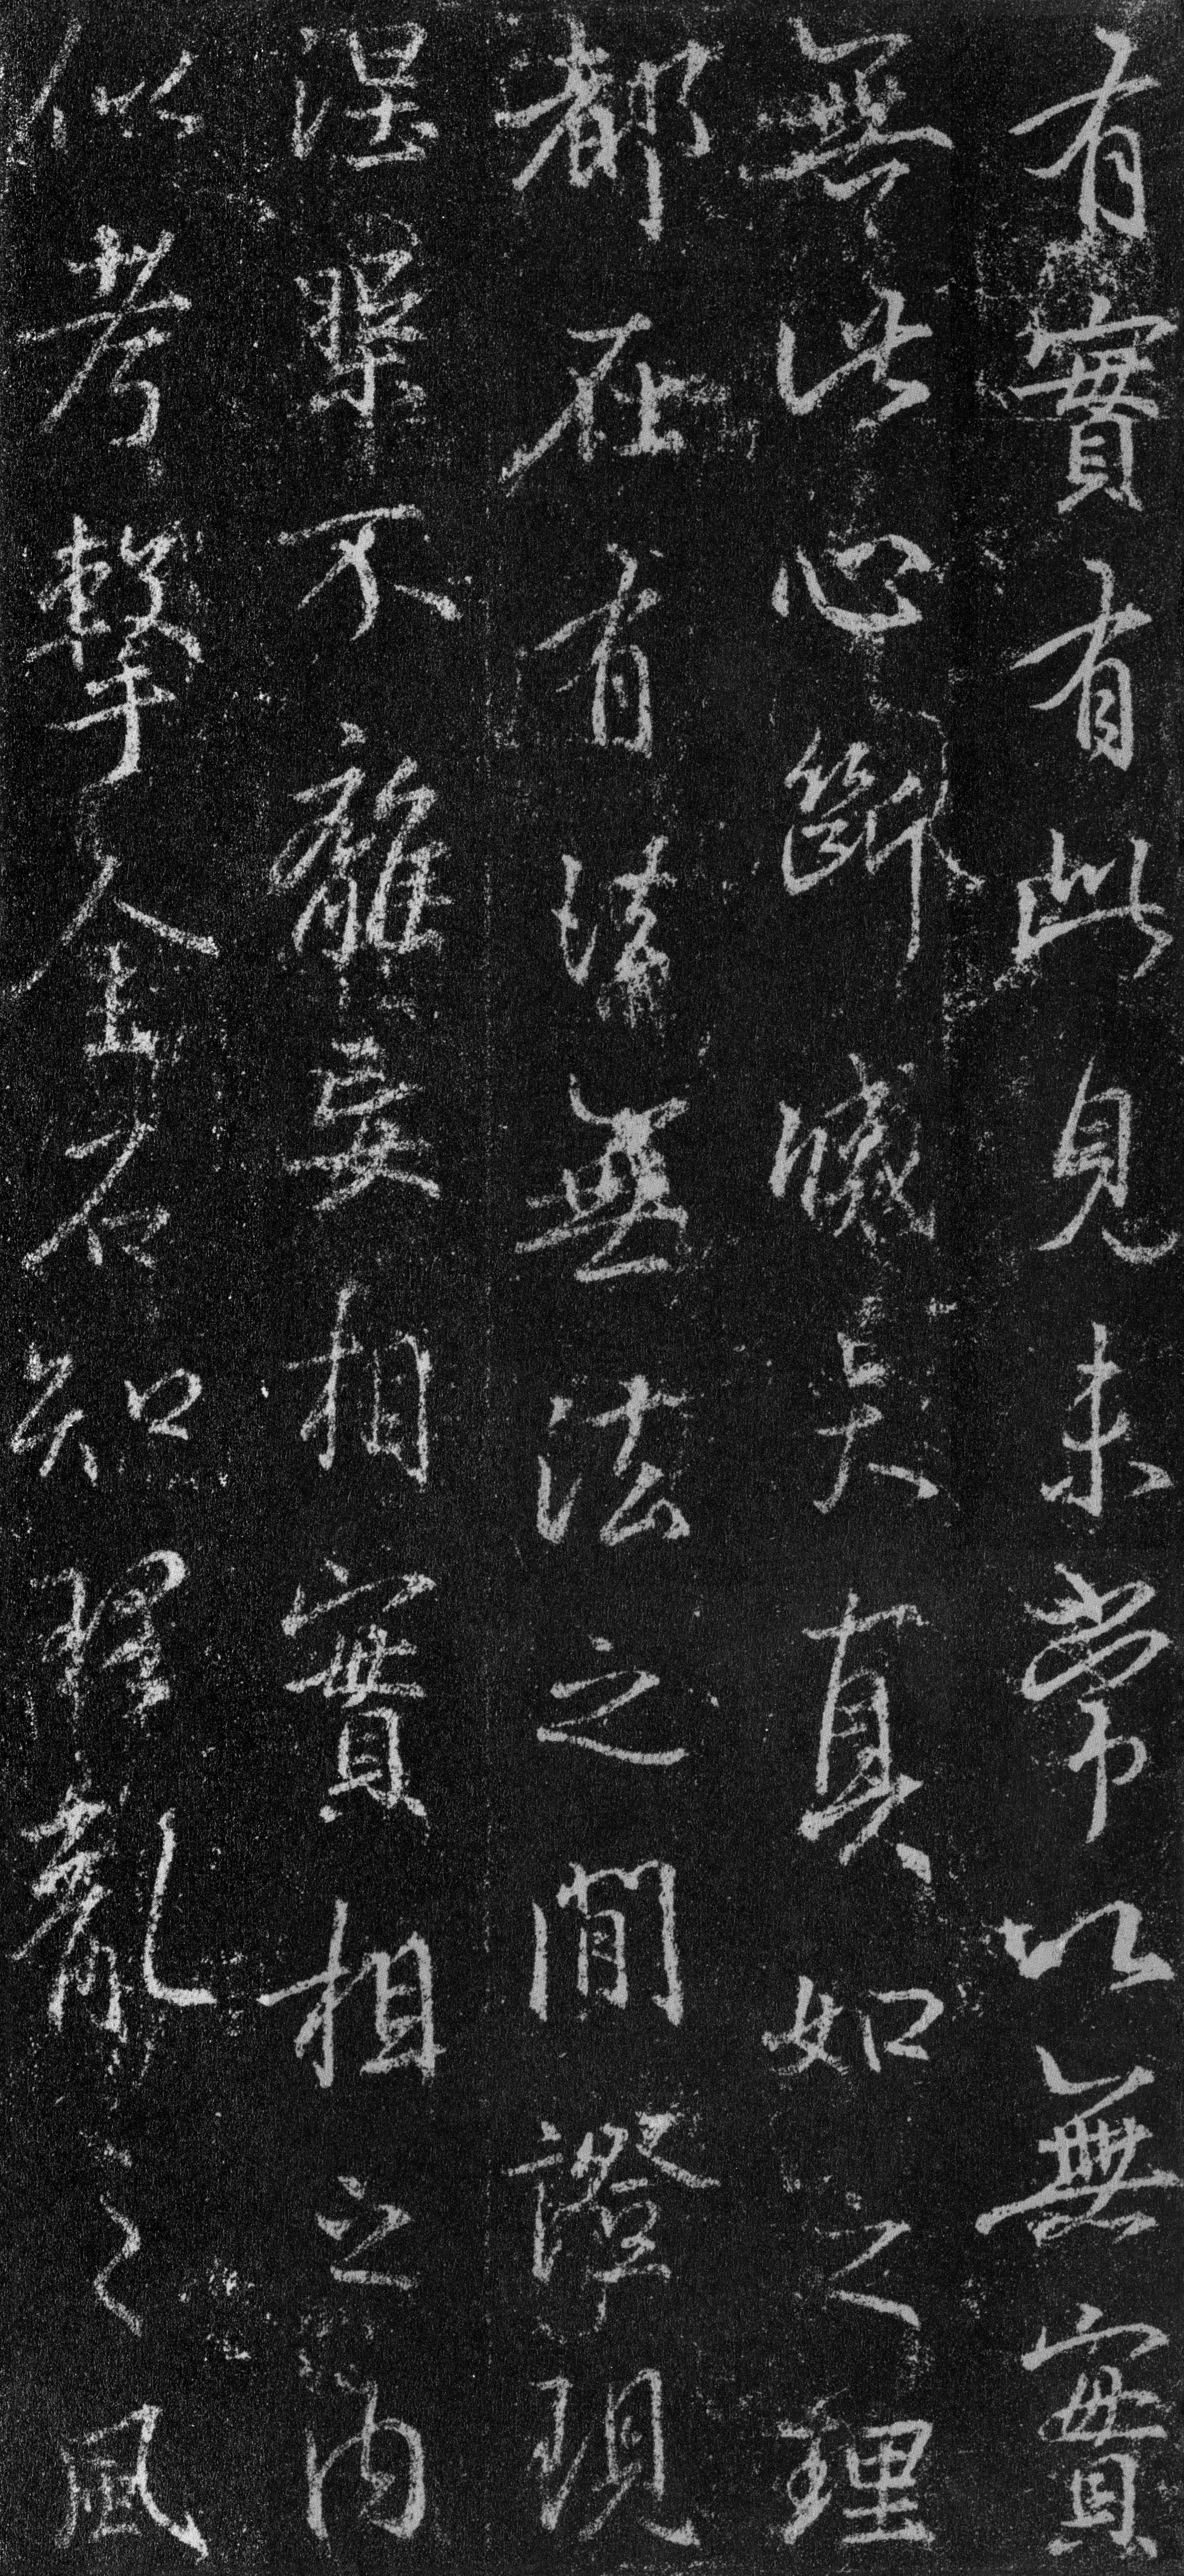 有實有此見未常以無實
無此心斷滅矣真如之理
都在有法無法之間證現
涅槃不離妄相實相之內
似考擊金石知理亂之風